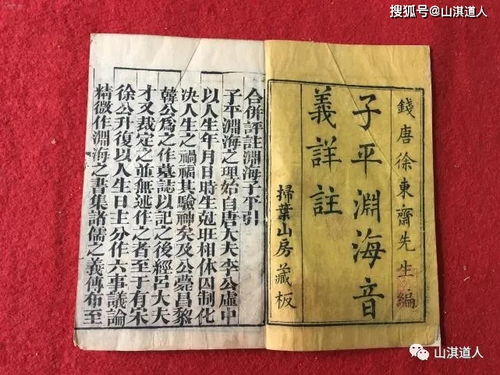 搜狐号@山淇道人
錢唐徐東齋先生編
子平淵海音
義詳註
掃葉山房藏板
合併評註淵海子平引
子平淵海之理始自唐大夫李公虛中
以人生年月日時生剋旺相休囚制化
決人生之禍福其驗神矣及公薨昌黎
韓公爲之作墓誌以記之後經呂大夫
才又裁定之並無述作之者至于有宋
徐公升復以人生日主分作六事議論
精微作淵海之書集諸儒之義傳布至
山淇道人